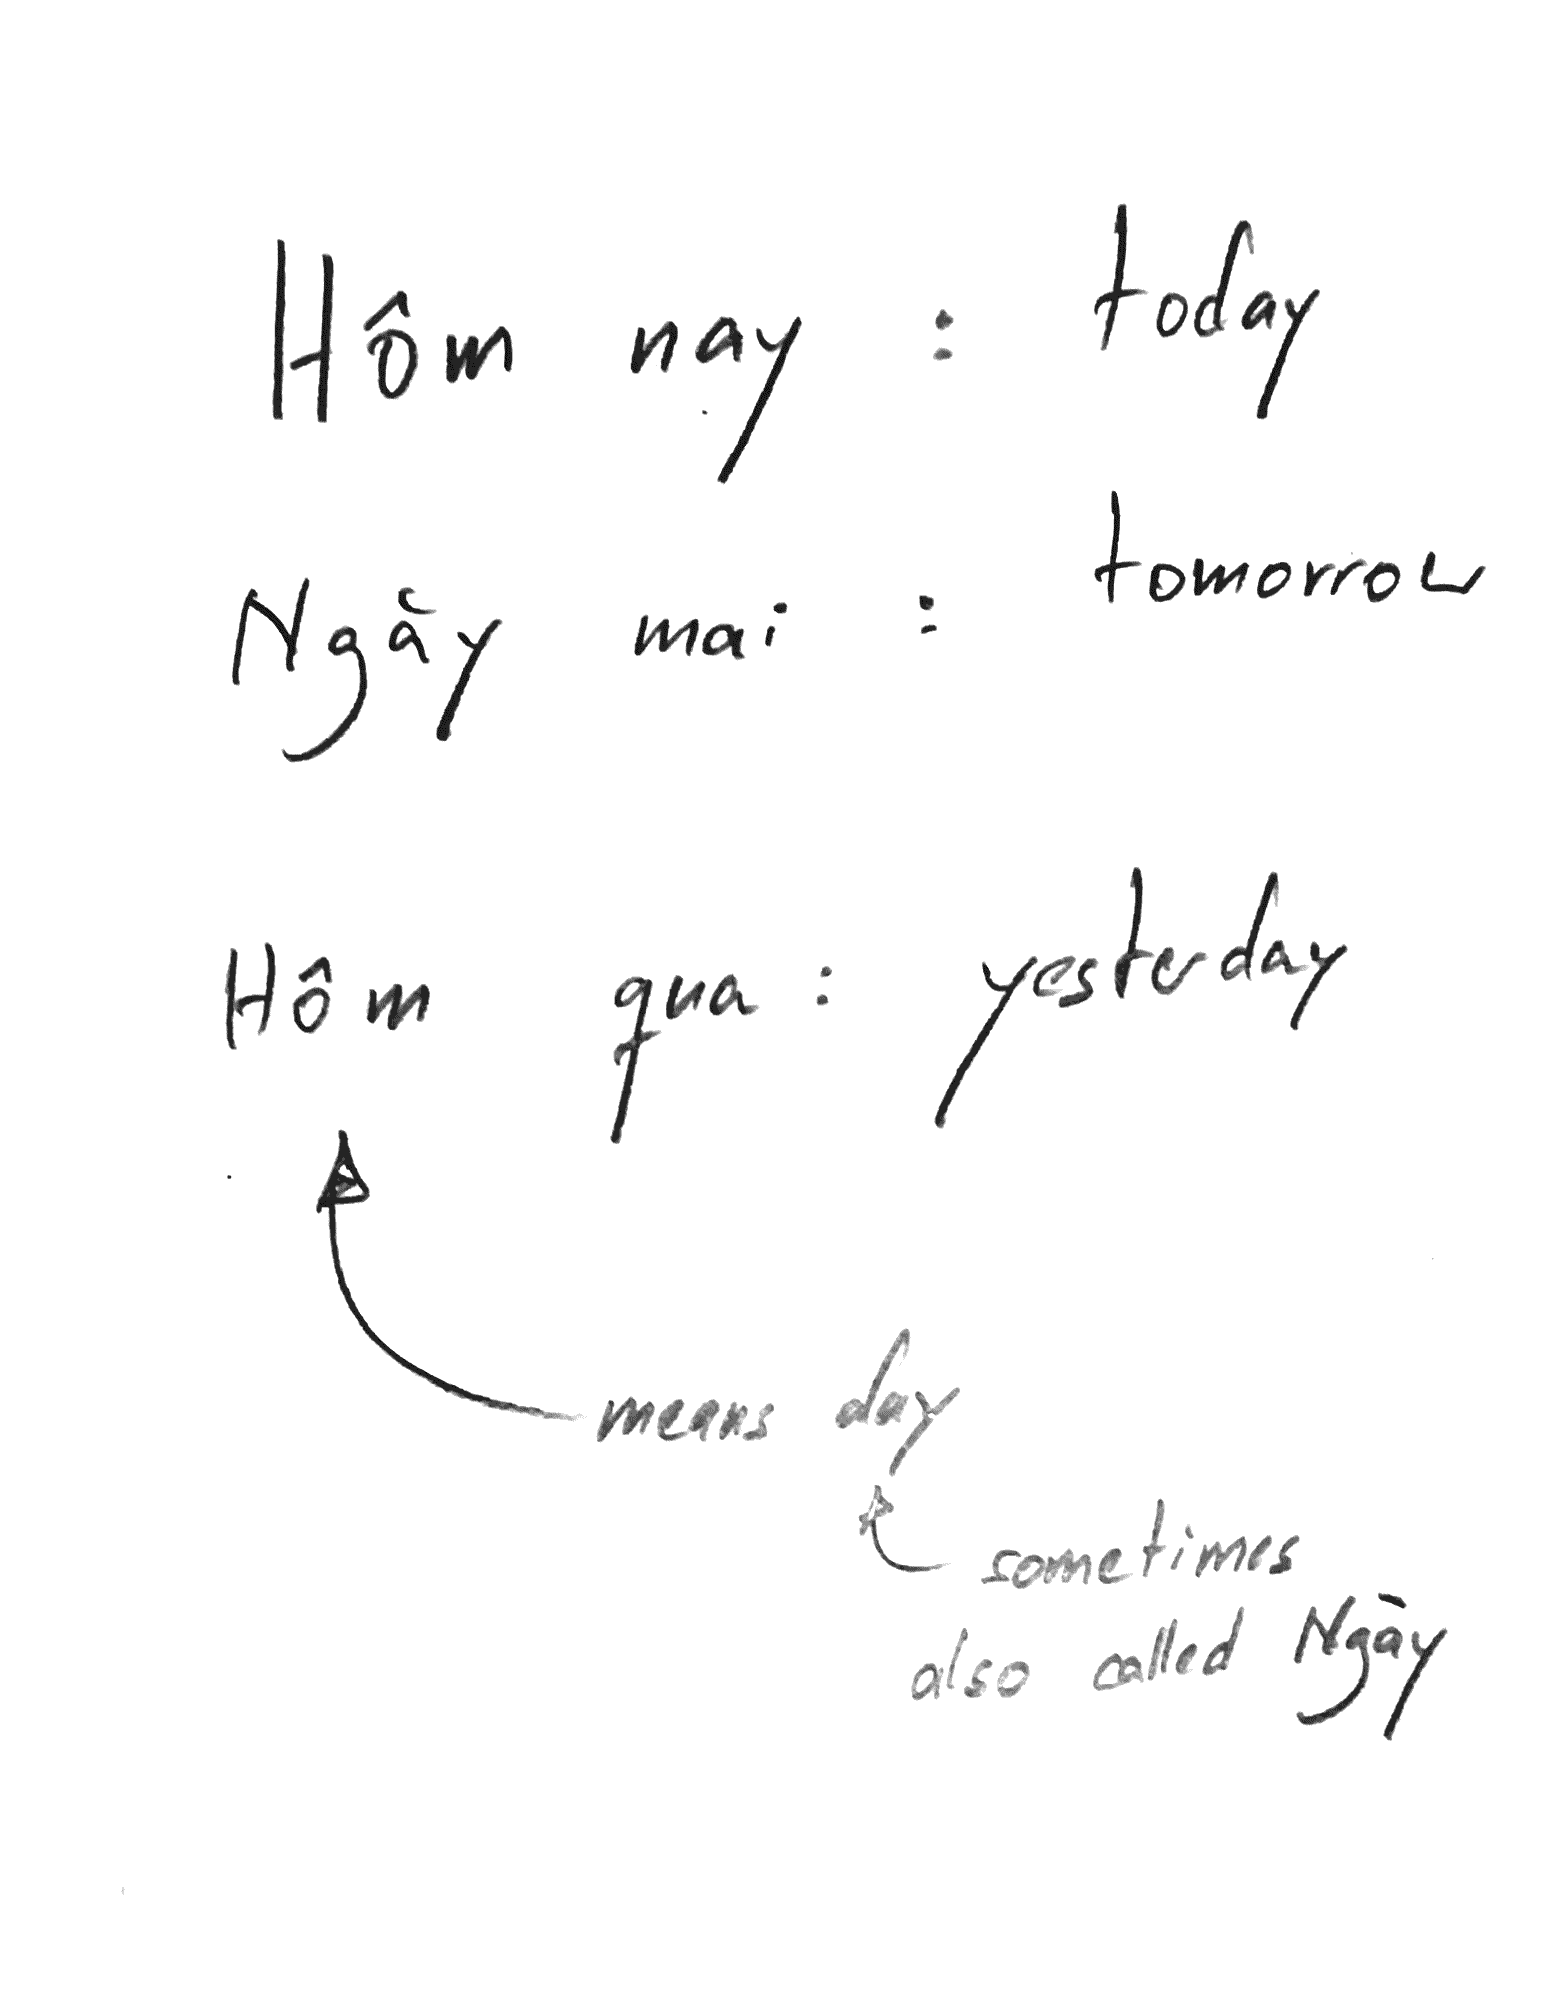 Hôm nay : today
Ngày mai : tomorrow
Hôm qua : yesterday
means day
sometimes
also called Ngày